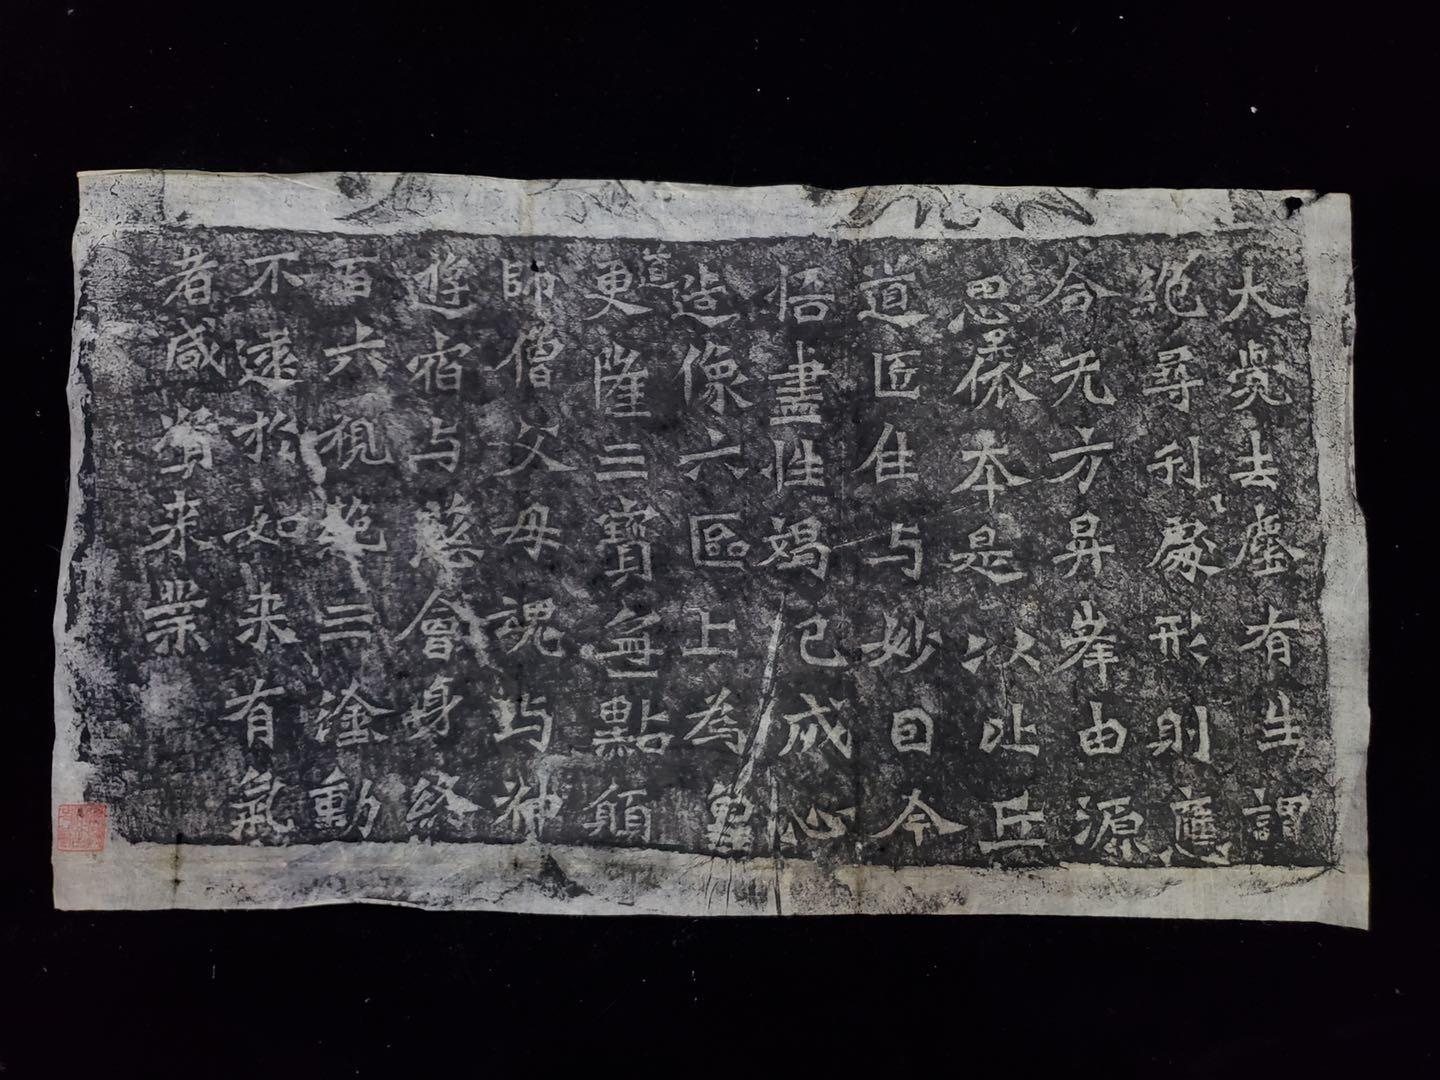 大覺去塵有生謂
絕尋刊處形則應
合无方昇峰由源
思依本是以比丘
道匠住与妙日今
悟盡性竭已成心
造像六區上為皇
道
更隆三寶無點願
師僧父母魂与神
遊宿与慈會身終
百六視苑三塗動
不遠於如来有氣
者咸資来業